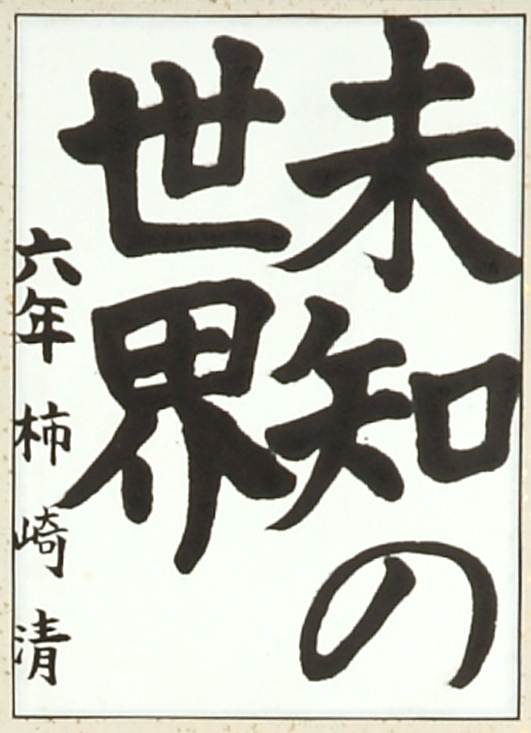 未知の
世界
六年 柿崎清